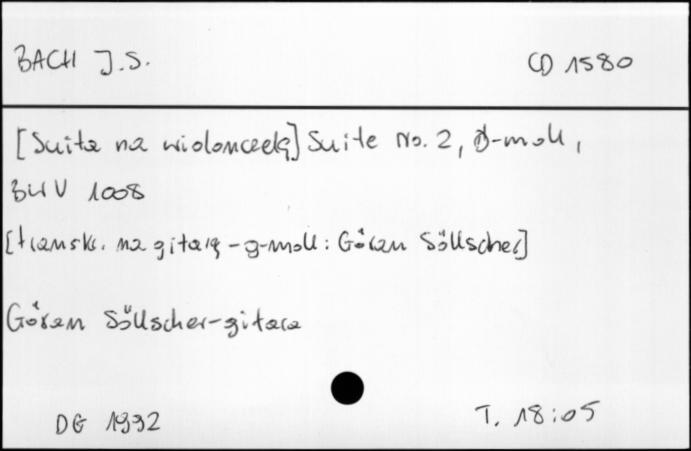 BACH J.S. CD 1580
[Suita na wiolonczelę] Suite No. 2, D-moll,
BWV 1008
[transkr. na gitarę - g-moll: Göran Söllscher]
Göran Söllscher - gitara
DG 1992 T. 18:05